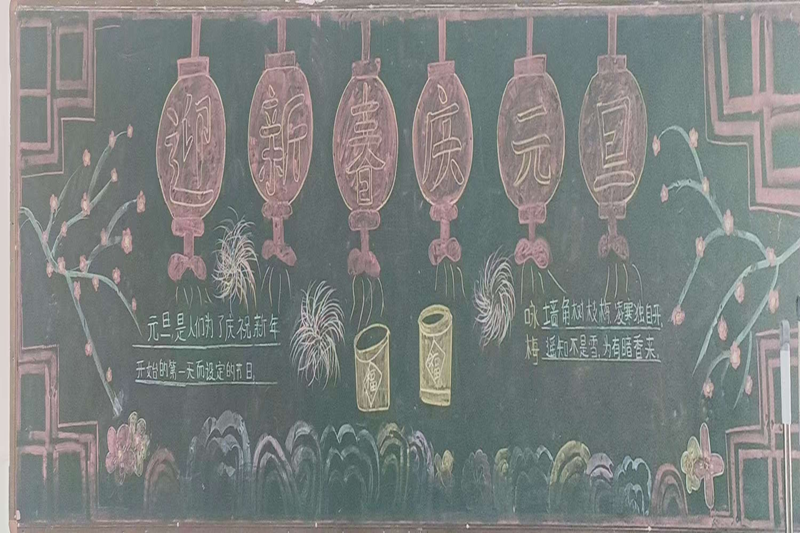 迎新春庆元旦
元旦,是人们为了庆祝新年
开始的第一天而设定的节日。
福
福
咏梅
墙角树枝梅,凌寒独自开,
遥知不是雪,为有暗香来。